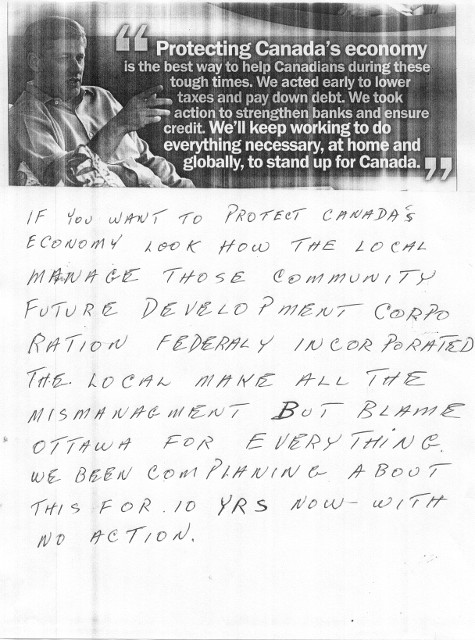 “ Protecting Canada's economy
is the best way to help Canadians during these
tough times. We acted early to lower
taxes and pay down debt. We took
action to strengthen banks and ensure
credit. We'll keep working to do
everything necessary, at home and
globally, to stand up for Canada. ”
IF YOU WANT TO PROTECT CANADA'S
ECONOMY LOOK HOW THE LOCAL
MANAGE THOSE COMMUNITY
FUTURE DEVELOPMENT CORPO
RATION FEDERALY INCORPORATED
THE LOCAL MAKE ALL THE
MISMANAGMENT BUT BLAME
OTTAWA FOR EVERYTHING.
WE BEEN COMPLANING ABOUT
THIS FOR.10 YRS NOW- WITH
NO ACTION.